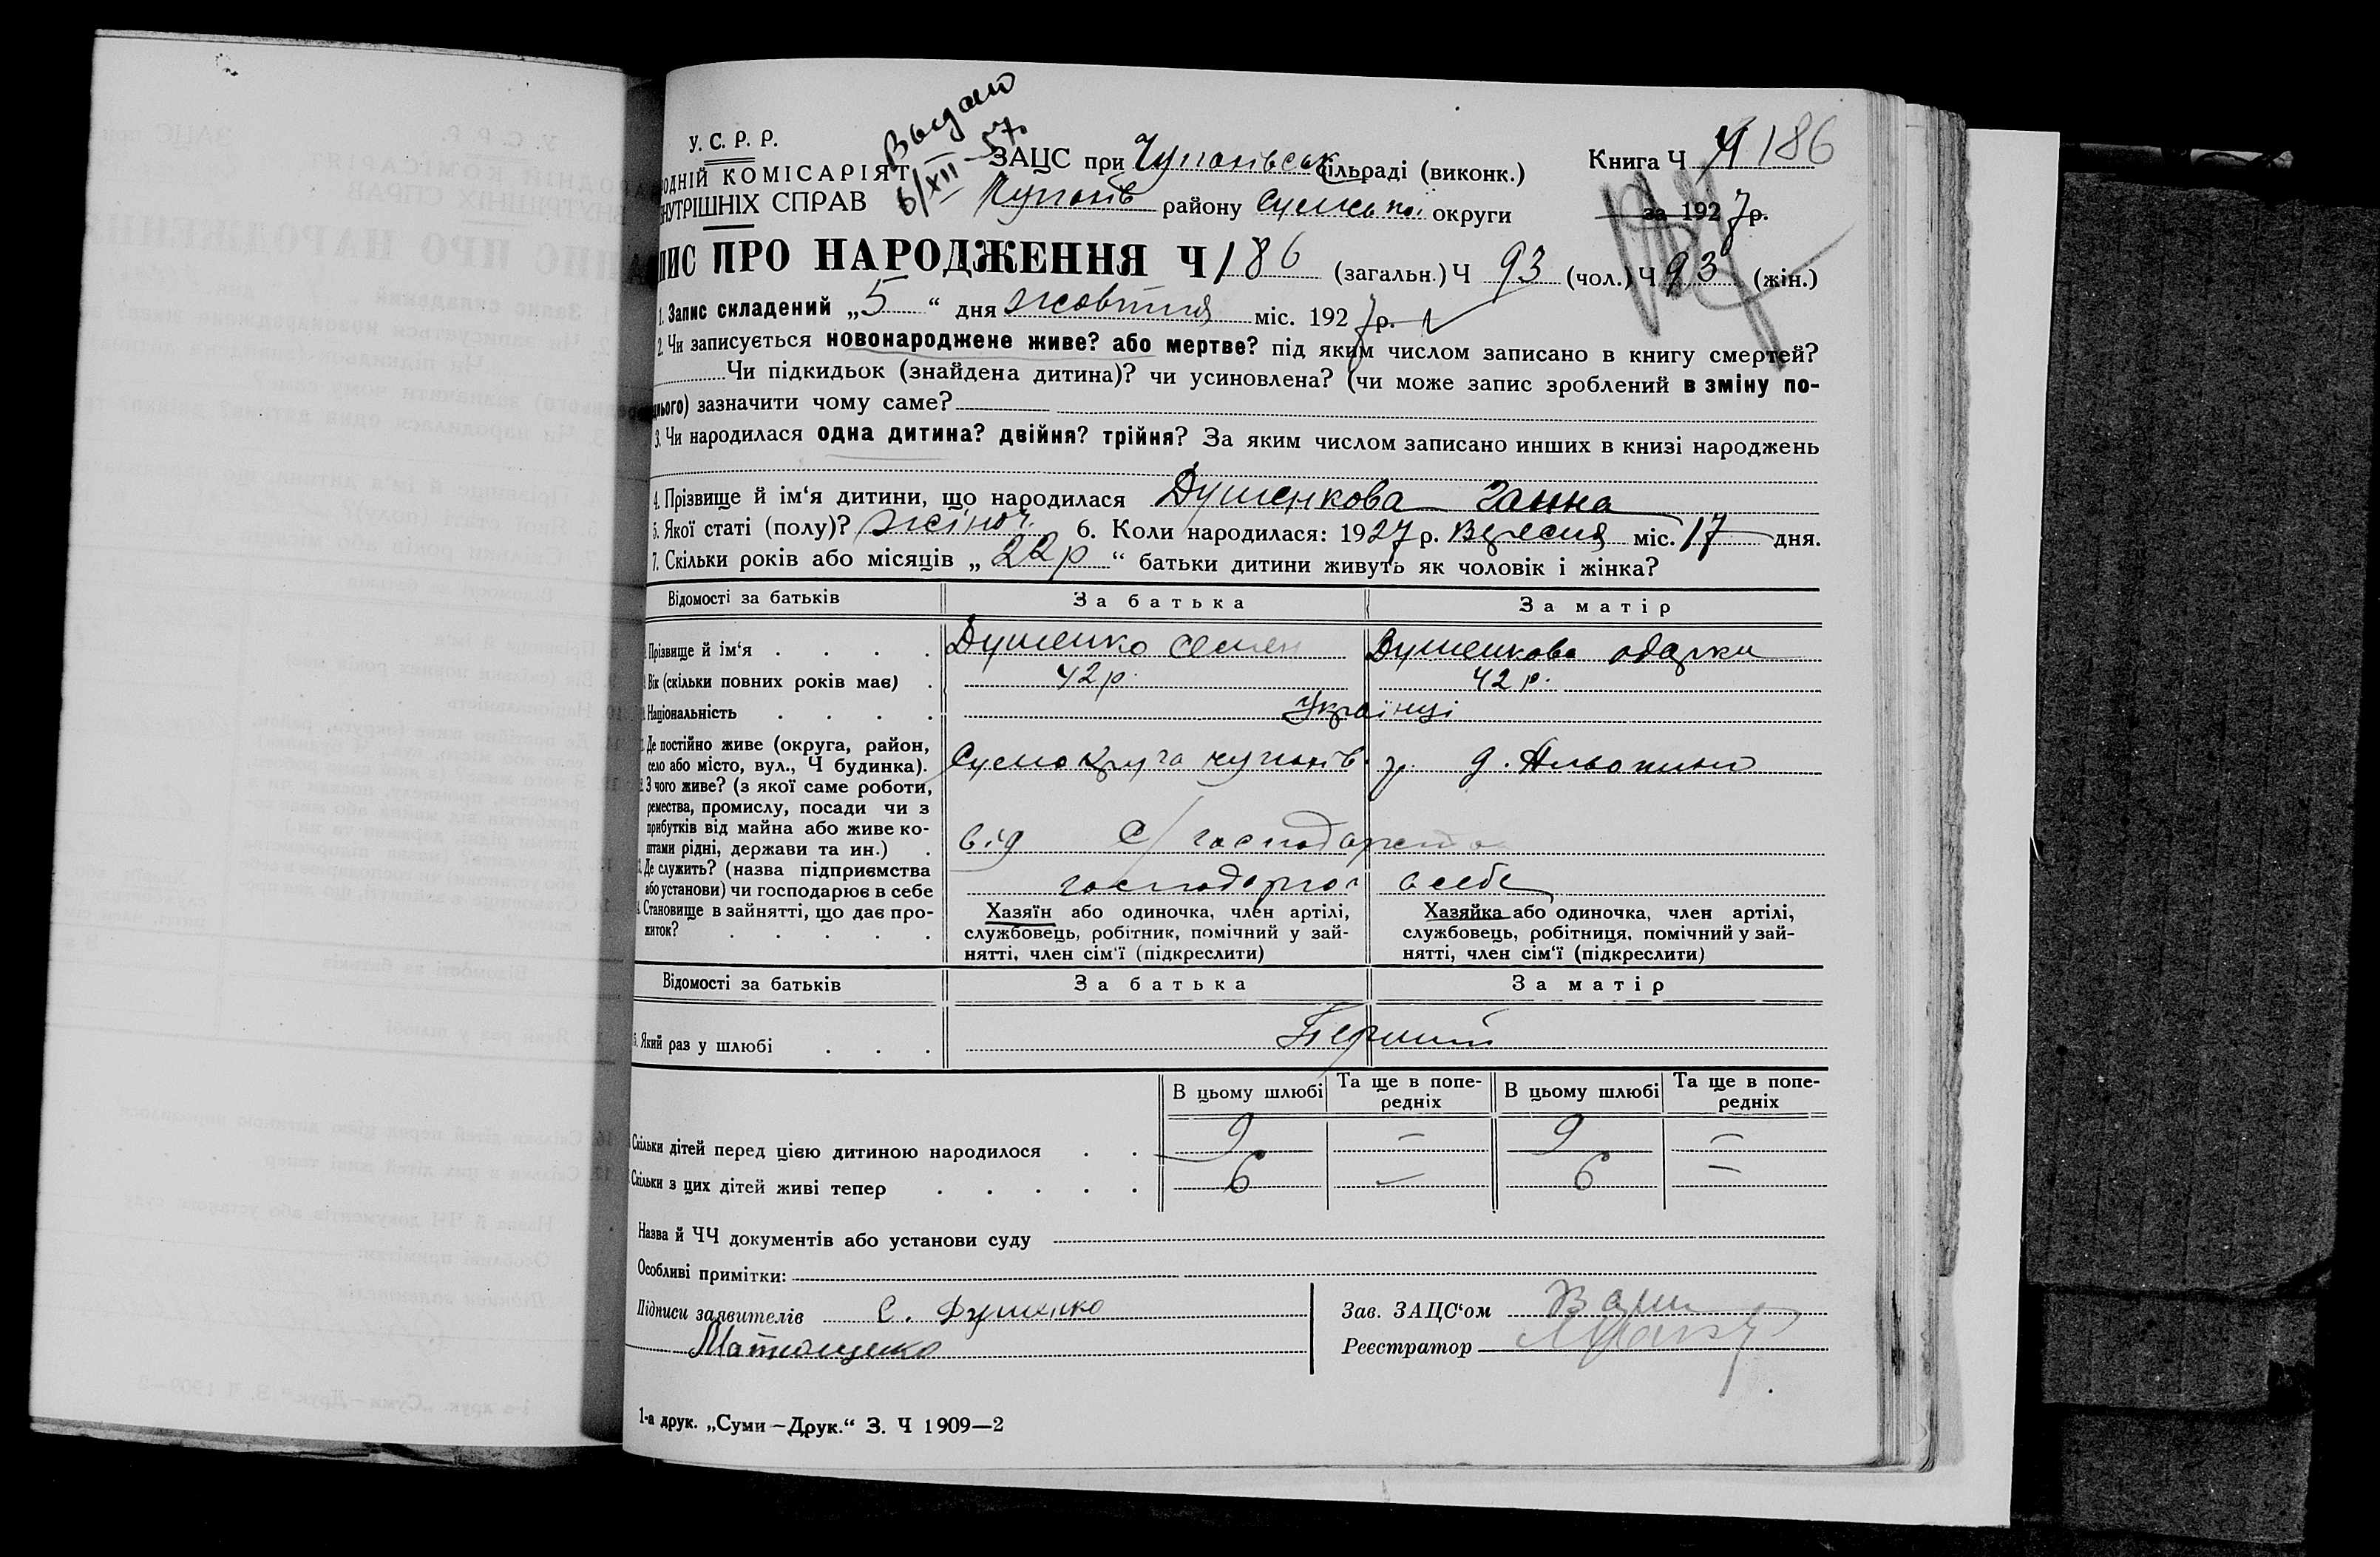 Выдано
6/XII–57.
У. С. Р. Р.
ОДНІЙ КОМІСАРІЯТ
НУТРІШНІХ СПРАВ
ЗАЦС при Чупахівськ сільраді (виконк.)
Чупахів району Сумської округи
Книга Ч 186
за 1927 р.
ПИС ПРО НАРОДЖЕННЯ Ч 186 (загальн.) Ч 93 (чол.) Ч 93 (жін.)
1. Запис складений „5“ дня жовтня міс. 1927 р.
2. Чи записується новонароджене живе? або мертве? під яким числом записано в книгу смертей?
Чи підкидьок (знайдена дитина)? чи усиновлена? (чи може запис зроблений в зміну по-
нього) зазначити чому саме?
3. Чи народилася одна дитина? двійня? трійня? За яким числом записано инших в книзі народжень
4. Прізвище й ім‘я дитини, що народилася Душенкова Ганна
5. Якої статі (полу)? жіноч. 6. Коли народилася: 1927 р. Вересня міс. 17 дня.
7. Скільки років або місяців „22 р“ батьки дитини живуть як чоловік і жінка?
Відомості за батьків За батька За матір
Прізвище й ім‘я Душенко Семен Душенкова Одарка
Вік (скільки повних років має) 42 р. 42 р.
Національність Українці
Де постійно живе (округа, район,
село або місто, вул., Ч будинка). Сумокруга чупахів. р.
З чого живе? (з якої саме роботи,
ремества, промислу, посади чи з
прибутків від майна або живе ко-
штами рідні, держави та ин.) від С/господарства
Де служить? (назва підприємства
або установи) чи господарює в себе господарює в себе
Становище в зайнятті, що дає про-
житок?
Хазяїн або одиночка, член артілі,
службовець, робітник, помічний у зай-
нятті, член сім‘ї (підкреслити)
Хазяйка або одиночка, член артілі,
службовець, робітниця, помічний у зай-
нятті, член сім‘ї (підкреслити)
Відомості за батьків За батька За матір
Який раз у шлюбі Перший
В цьому шлюбі Та ще в попе-
редніх В цьому шлюбі Та ще в попе-
редніх
Скільки дітей перед цією дитиною народилося 9 — 9 —
Скільки з цих дітей живі тепер 6 — 6 —
Назва й ЧЧ документів або установи суду
Особливі примітки:
Підписи заявителів С. Душенко
Матющенко
Зав. ЗАЦС‘ом
Реєстратор
1-а друк. „Суми–Друк.“ З. Ч 1909—2